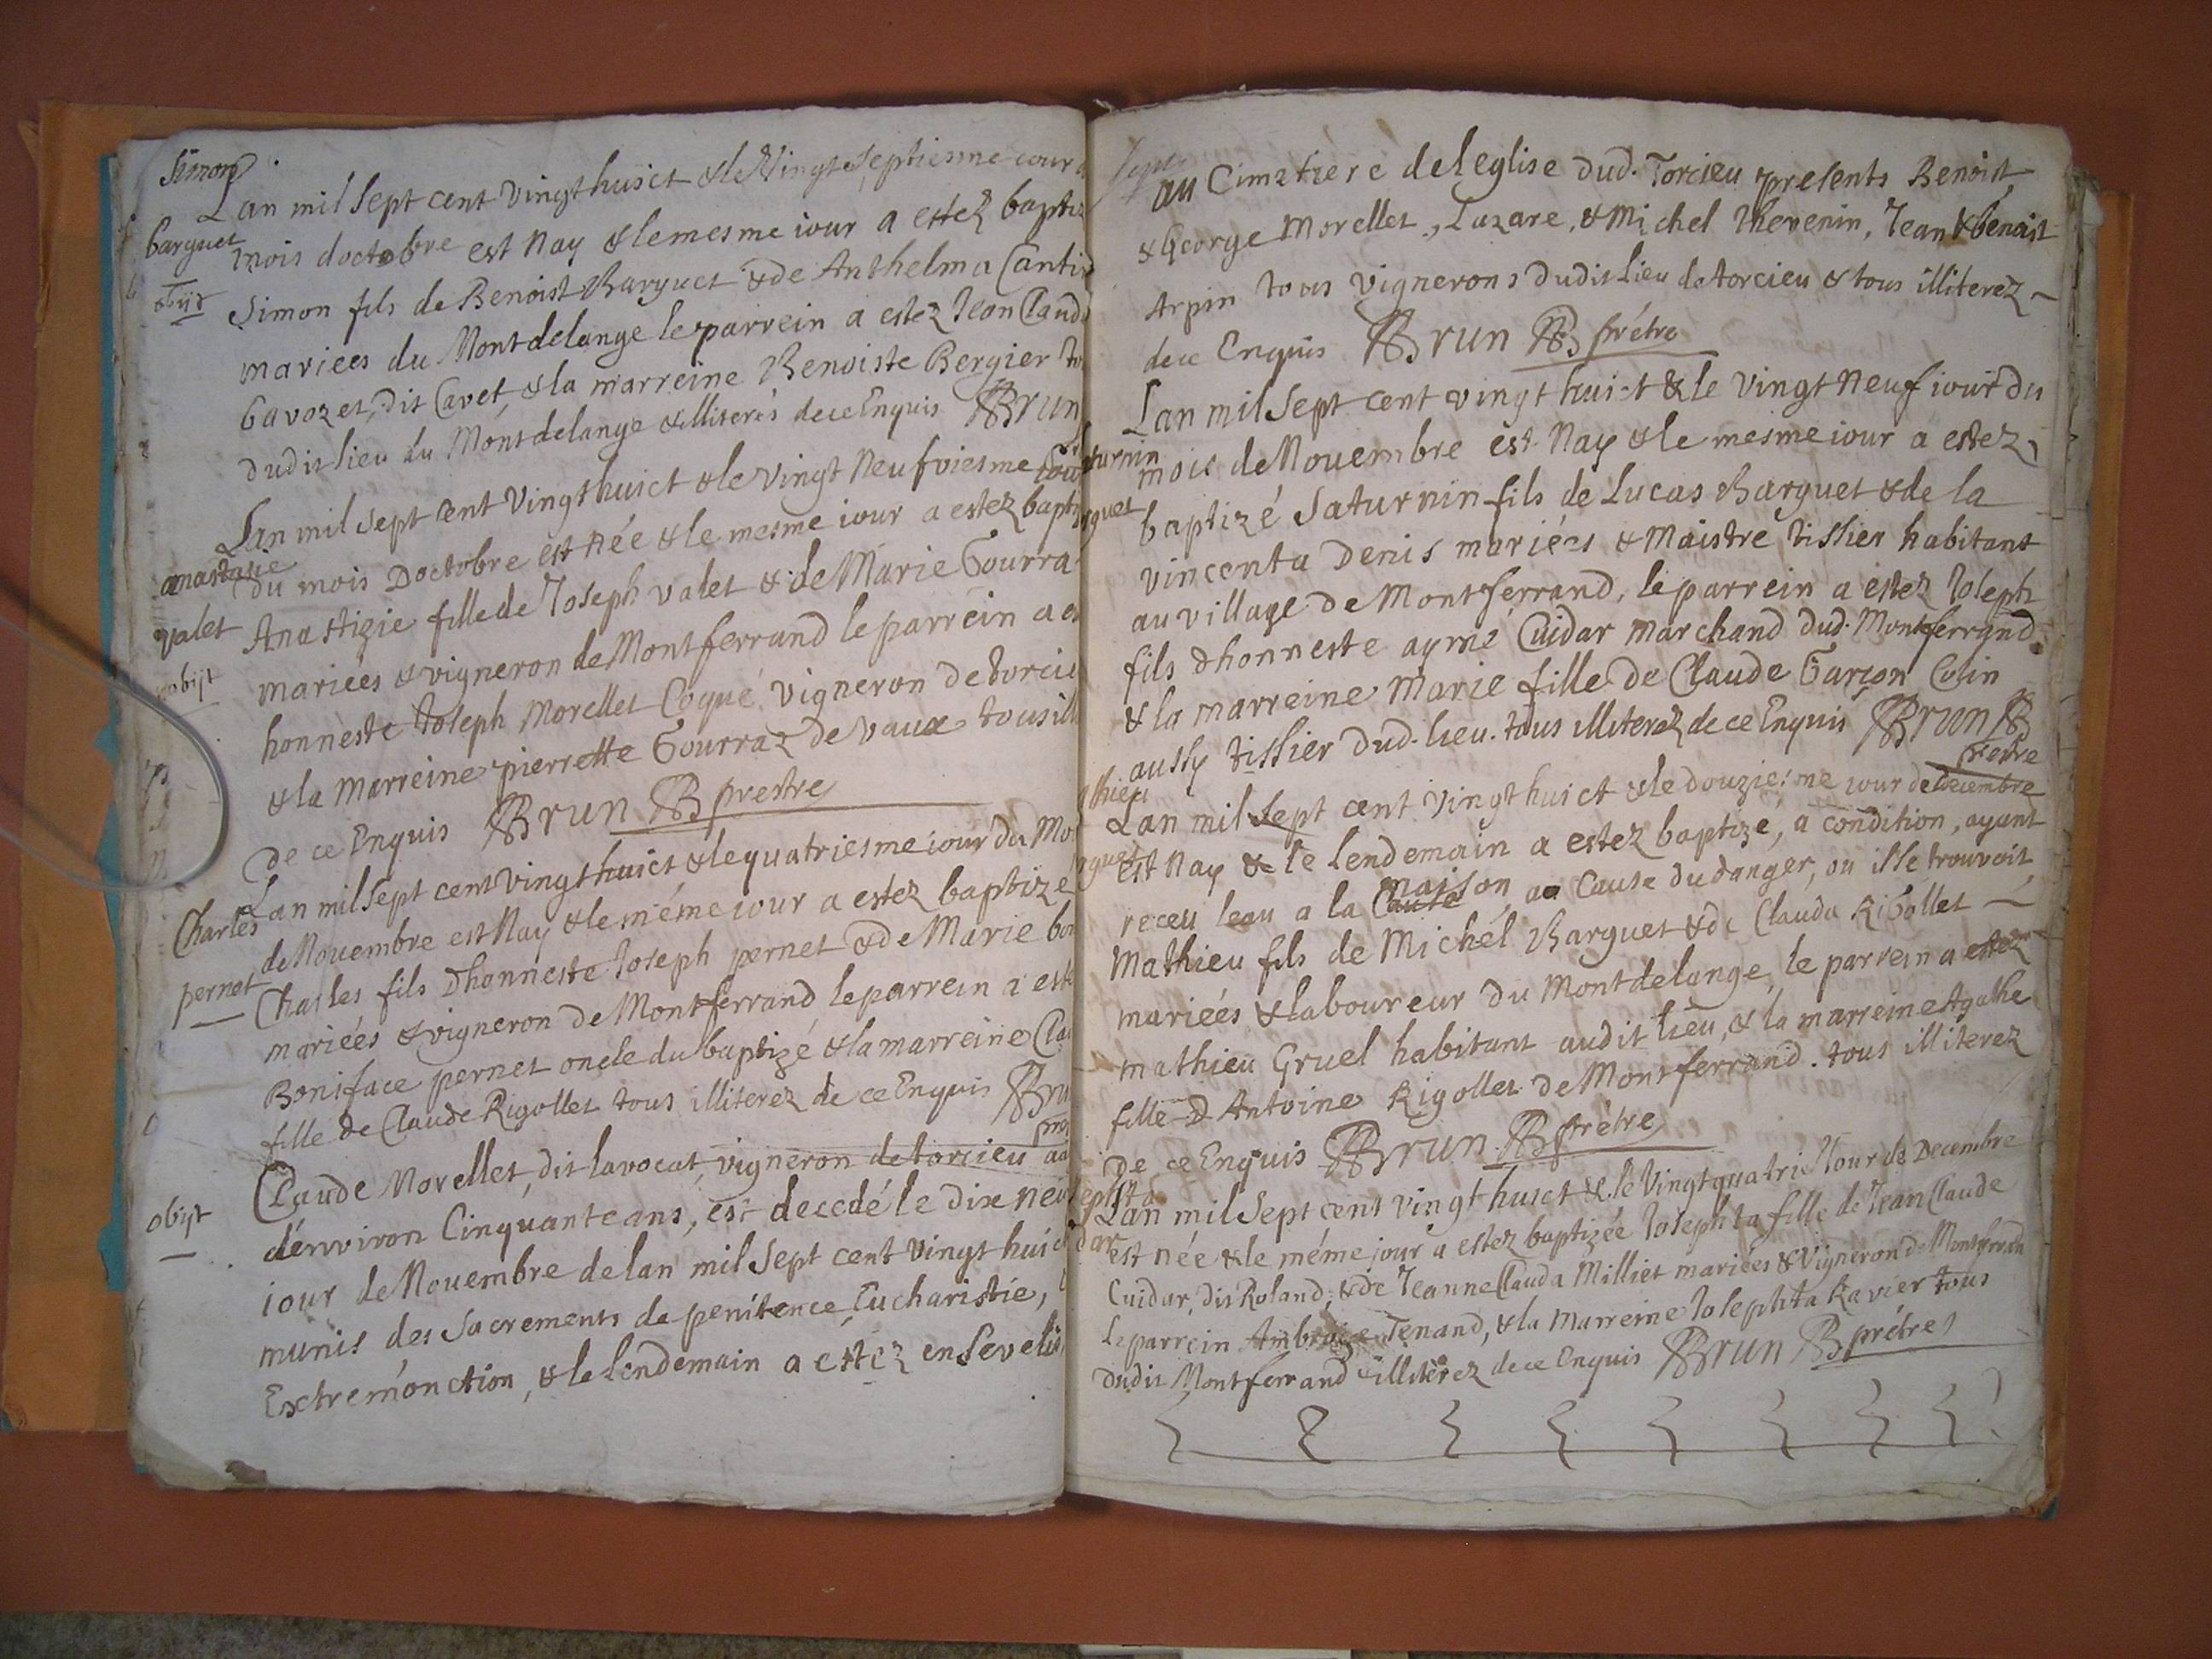 Simon
Lan mil sept cent vingt huict & le Vingt septiesme iour
barguet
mois doctobre est Nay & le mesme iour a estez baptiz
obijt
Simon fils de Benoist Barguet & de Anthelma Cantin
mariees du Montdelange le parrein a estez Jean Claud
Gavozet, dit Cavet, & la marreine Benoiste Bergier to
dudit lieu du Montdelange & illiterés de ce Enquis Brun
Lan mil sept cent Vingt huict & le vingt Neufviesme iour
anastasie
du mois Doctobre est née & le mesme iour a estez bapti
valet
Anastizie fille de Joseph valet & de Marie Gourra
obijt
mariées & vigneron de Montferrand le parrein a es
honneste Joseph Morellet Coqué vigneron de torcieu
& la Marreine pierrette Gourraz de vaux tous ill
de ce Enquis Brun B prestre
Lan mil sept cent Vingt huict & le quatriesme iour du Moi
Charles
de Nouembre est Nay & le méme iour a estez baptize
pernet
Charles fils Dhonneste Joseph pernet & de Marie bon
mariées & vigneron de Montferrand, le parrein a este
Boniface pernet oncle du baptizé & la marreine Cla
fille de Claude Rigollet tous illiterez de ce Enquis Bru
Claude Morellet, dit lavocat, vigneron de torcieu
obijt
dénviron Cinquante ans, est decedé le dix neu
iour de Nouembre de lan mil sept cent vingt huict
munis des Sacrements de penitence, Eucharistie,
Extremónction, & le lendemain a estez ensevelis
au Cimetiere de leglise dud. Torcieu presents Benoist
& George Morellet, Lazare, & Michel Thevenin, Jean & benoist
Arpin tous vignerons dudit Lieu de torcieu & tous illiterez
de ce Enquis Brun B prétre
Lan mil sept cent vingt huict & le vingt Neuf iour du
turnin
mois de Nouembre est Nay & le mesme iour a estez
rguet
baptizé Saturnin fils de Lucas Barguet & de la
vincenta Denis mariées & Maistre tissier habitant
au village de Montferrand, le parrein a estez Joseph
fils dhonneste aymé Cuidar marchand dud. Montferrand
& la marreine Marie fille de Claude Garçon Colin
aussy tissier dud. lieu. tous illiterez de ce Enquis Brun B
prestre
thieu
Lan mil sept cent vingt huict & le douziesme iour de Decembre
rguet
est Nay & le lendemain a estez baptizé, a condition, ayant
receu leau a la Cause maison a Cause du danger, ou il se trouvoit
Mathieu fils de Michel Barguet & de Clauda Rigollet
mariées & laboureur du Montdelange, le parrein a estez
mathieu Gruel habitant audit lieu, & la marreine Agathe
fille D Antoine Rigollet de Montferrand. tous illiterez
de ce Enquis Brun B prétre
sephta
Lan mil sept cent vingt huict & le Vingt quatrie Jour de Decembre
dar
est née & le méme jour a estez baptizée Josephta fille de Jean Claude
Cuidar, dit Roland, & de Jeanne Clauda Milliet mariées & Vigneron de Montferrand
le parrein Ambroise Tenand, & la Marreine Josephta Ravier tous
dudit Montferrand & illiterez de ce Enquis Brun B prétre